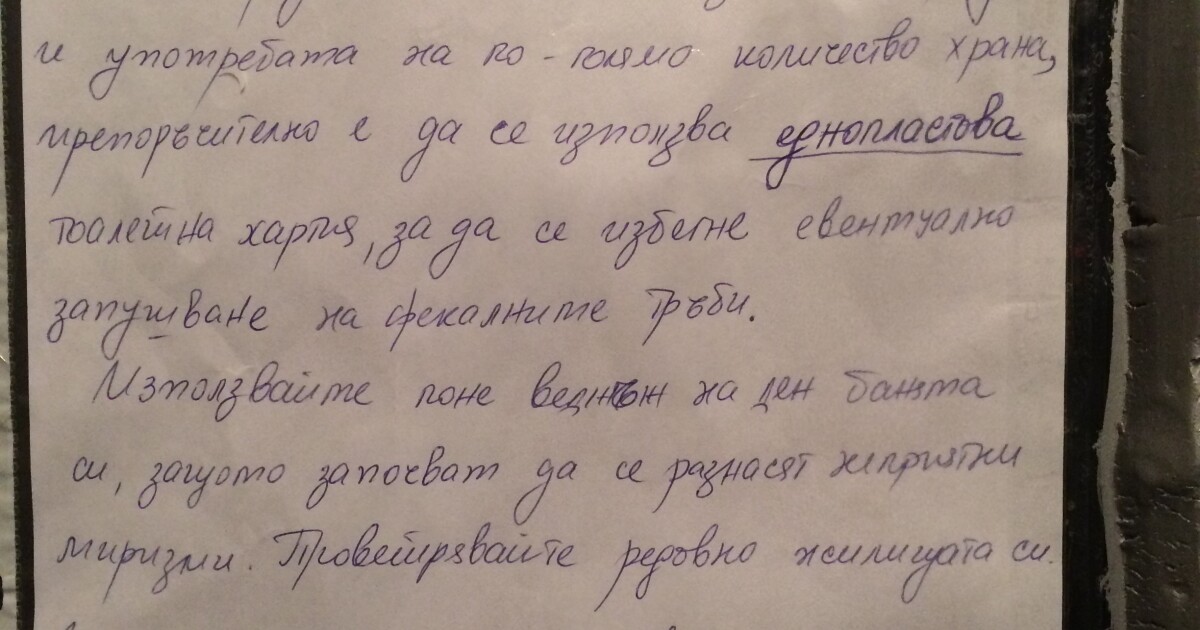 и употребата на по-голямо количество храна,
препоръчително е да се използва еднопластова
тоалетна хартия, за да се избегне евентуално
запушване на фекалните тръби.
Използвайте поне веднъж на ден банята
си, защото започват да се разнасят неприятни
миризми. Проветрявайте редовно жилищата си.